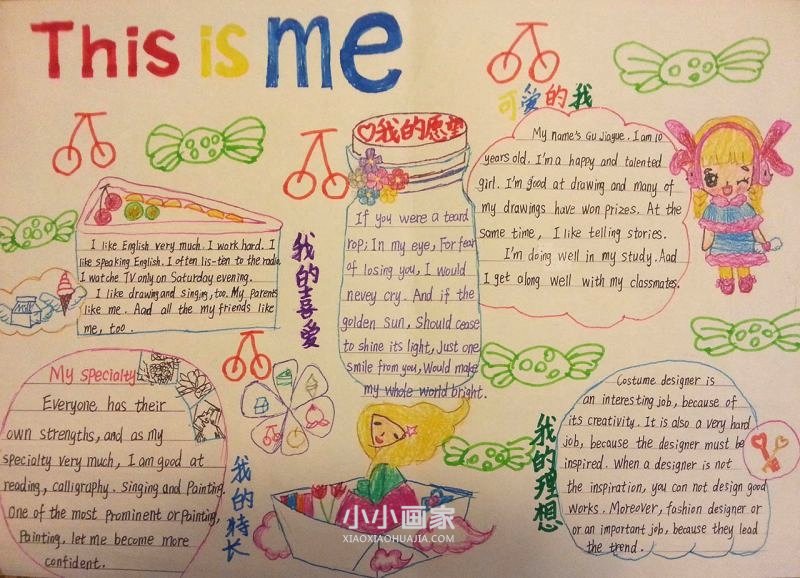 This is me
可爱的我
My name's Gu Jiayue. I am 10
years old. I'm a happy and talented
girl. I'm good at drawing and many of
my drawings have won prizes. At the
same time, I like telling stories.
I'm doing well in my study. Aad
I get along well with my classmates.
我的愿望
If you were a teard
rop; In my eye, For fear
of losing you, I would
nevey cry. And if the
golden sun, Should cease
to shine its light, Just one
smile from you, Would make
my whole world bright.
I like English very much. I work hard. I
like speaking English. I often lis-ten to the radio.
I watche TV only on Saturday evening.
I like drawing and singing, too. My parents
like me. Aad all the my friends like
me, too.
我的喜爱
Milk
My specialty
Everyone has their
own strengths, and as my
specialty very much, I am good at
reading, calligraphy. Singing and Painting.
One of the most prominent or Painting,
Painting, let me become more
confident.
我的特长
Costume designer is
an interesting job, because of
its creativity. It is also a very hard
job, because the designer must be
inspired. When a designer is not
the inspiration, you can not design good
works. Moreover, fashion designer or
or an important job, because they lead
the trend.
我的理想
小小画家
XIAOXIAOHUAJIA.COM